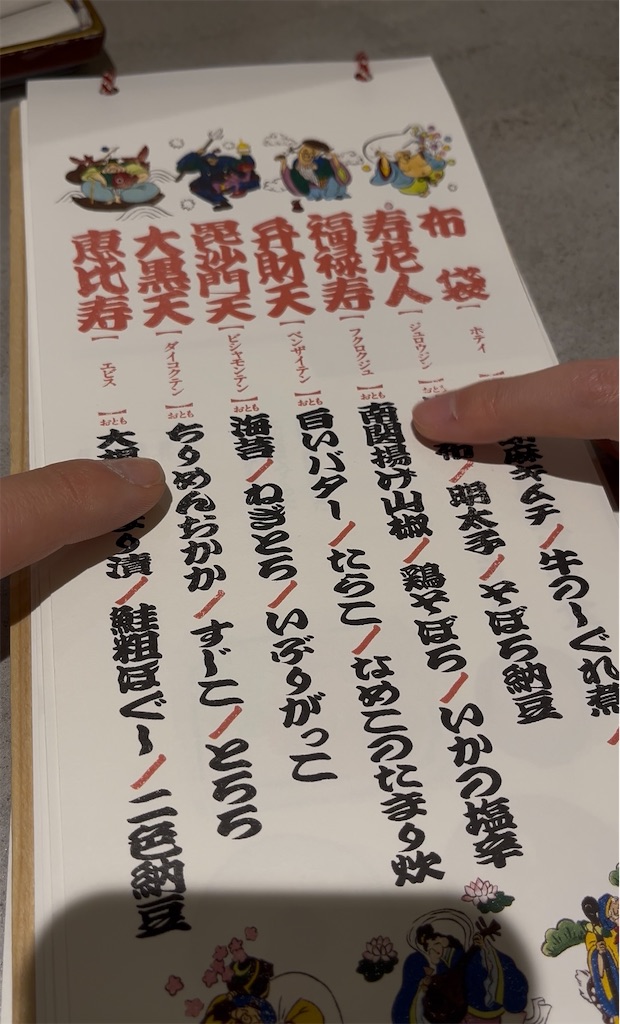 布袋【ホテイ】麻キムチ/牛のしぐれ煮/
寿老人【ジュロウジン】【おとも】布/明太子/そぼろ納豆
福禄寿【フクロクジュ】【おとも】南関揚げ山椒/鶏そぼろ/いかの塩辛
弁財天【ベンザイテン】【おとも】白いバター/たらこ/なめこのたまり炊
毘沙門天【ビシャモンテン】【おとも】海苔/ねぎとろ/いぶりがっこ
大黒天【ダイコクテン】【おとも】ちりめんおかか/すじこ/とろろ
恵比寿【エビス】【おとも】大り漬/鮭粗ほぐし/二色納豆